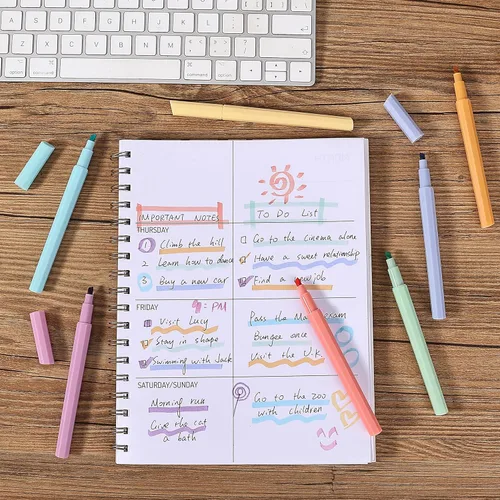 IMPORTANT NOTES
THURSDAY
1 Climb the hill
2 Learn how to dance
3 Buy a new car
FRIDAY
9: PM
Visit Lucy
Stay in shape
Swimming with Jack
SATURDAY/SUNDAY
Morning run
Give the cat
a bath
To Do List
Go to the cinema alone
Have a sweet relationship
Find a new job
Pass the exam
Bungee once
Visit the U.K.
Go to the zoo
with children